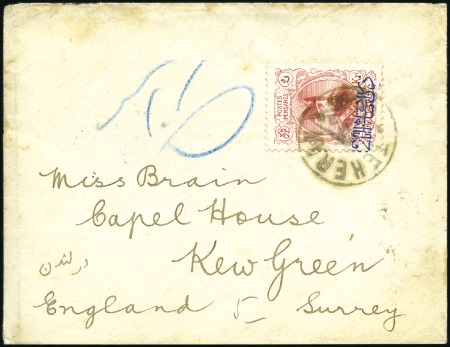 POSTES PERSANES
TEHERAN
Miss Brain
Capel House
Kew Green
در لندن
England 5 Surrey